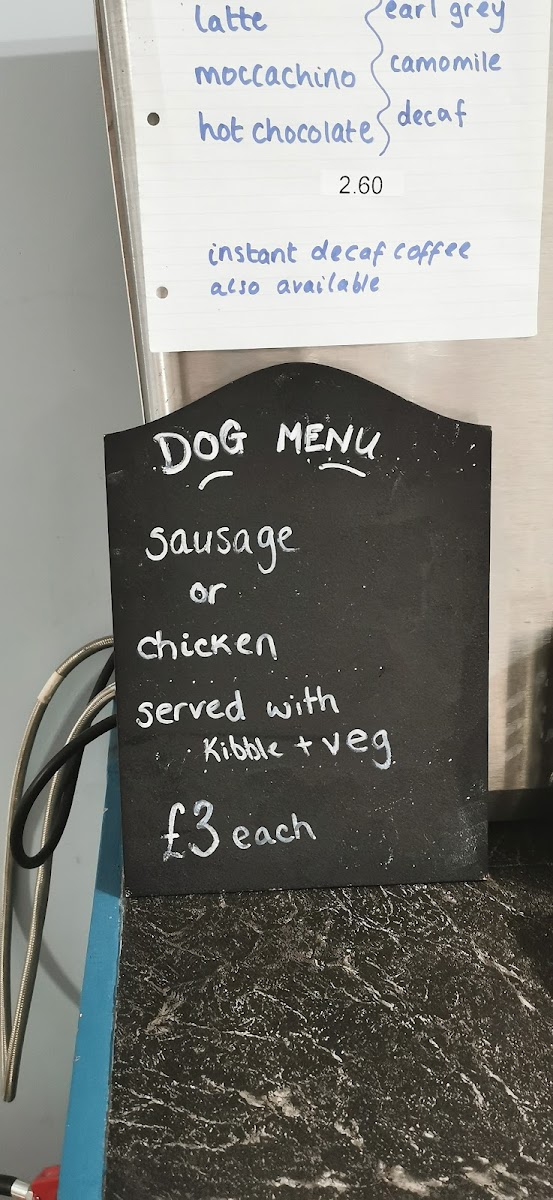 latte
earl grey
moccachino
camomile
hot chocolate
decaf
2.60
instant decaf coffee
also available
DOG MENU
sausage
or
chicken
served with
kibble + veg
£3 each